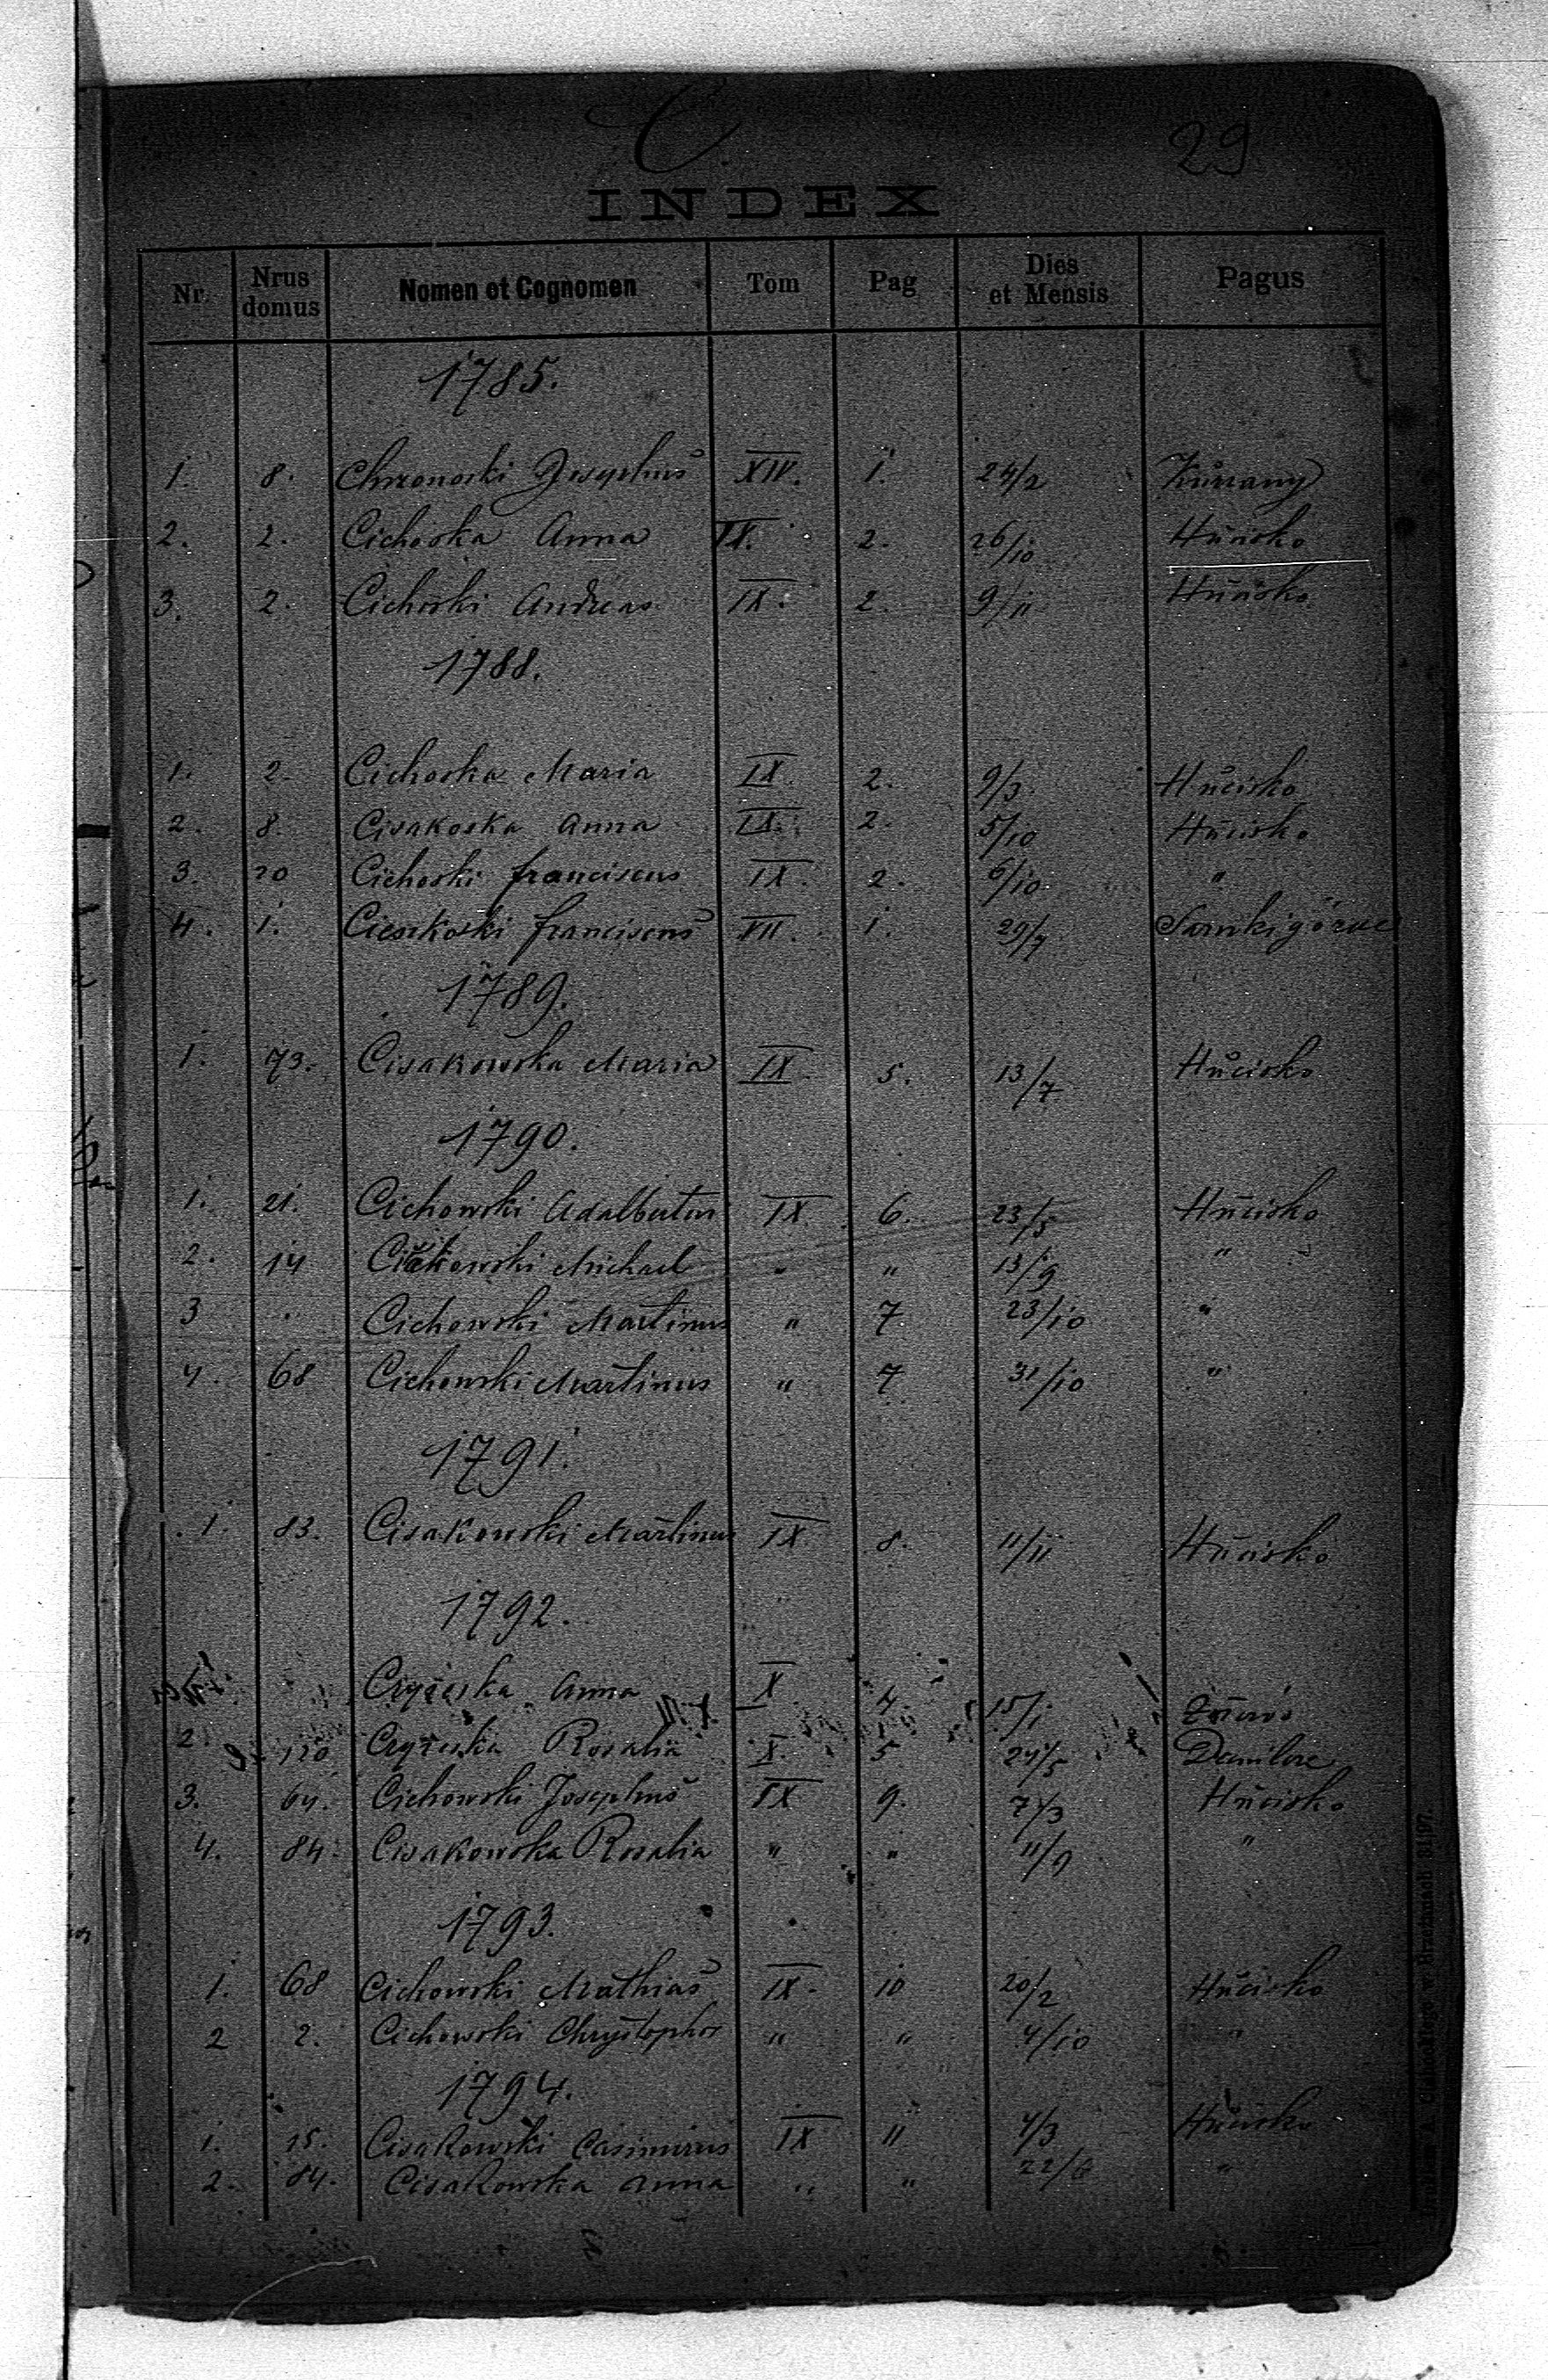 C.
29
INDEX
Nr. Nrus domus Nomen et Cognomen Tom Pag Dies et Mensis Pagus
1785.
1. 8. Chronoski Josephus XIV. 1. 24/2
2. 2. Cichoska Anna IX. 2. 26/10 Hucisko
3. 2. Cichoski Andreas IX. 2. 9/11 Hucisko
1788.
1. 2. Cichoska Maria IX. 2. 9/3 Hucisko
2. 8. Cisakoska Anna IX. 2. 5/10 Hucisko
3. 20 Cichoski franciscus IX. 2. 6/10 "
4. 1. franciscus VII. 1. 29/7 Sarnkigórne
1789.
1. 73. Cisakowska Maria IX 5. 13/7 Hucisko
1790.
1. 21. Cichowski Adalbertus IX. 6. 23/5 Hucisko
2. 14 Michael " " 13/9 "
3 . Cichowski Martinus " 7 23/10 "
4. 68 Cichowski Martinus " 7 31/10 "
1791.
1. 83. Cisakowski Martinus IX 8. 11/11 Hucisko
1792.
Anna X 4. 15/1
2. 120 Rosalia X. 5 24/5
3. 64. Cichowski Josephus IX 9. 7/3 Hucisko
4. 84. Cisakowska Rosalia " " 11/9 "
1793.
1. 68 Cichowski Mathias IX. 10 20/2 Hucisko
2 2. Cichowski Chrystophor " " 4/10 "
1794.
1. 15. Cisakowski Casimirus IX 11 4/3 Hucisko
2. 84. Cisakowska Anna " " 22/6 "